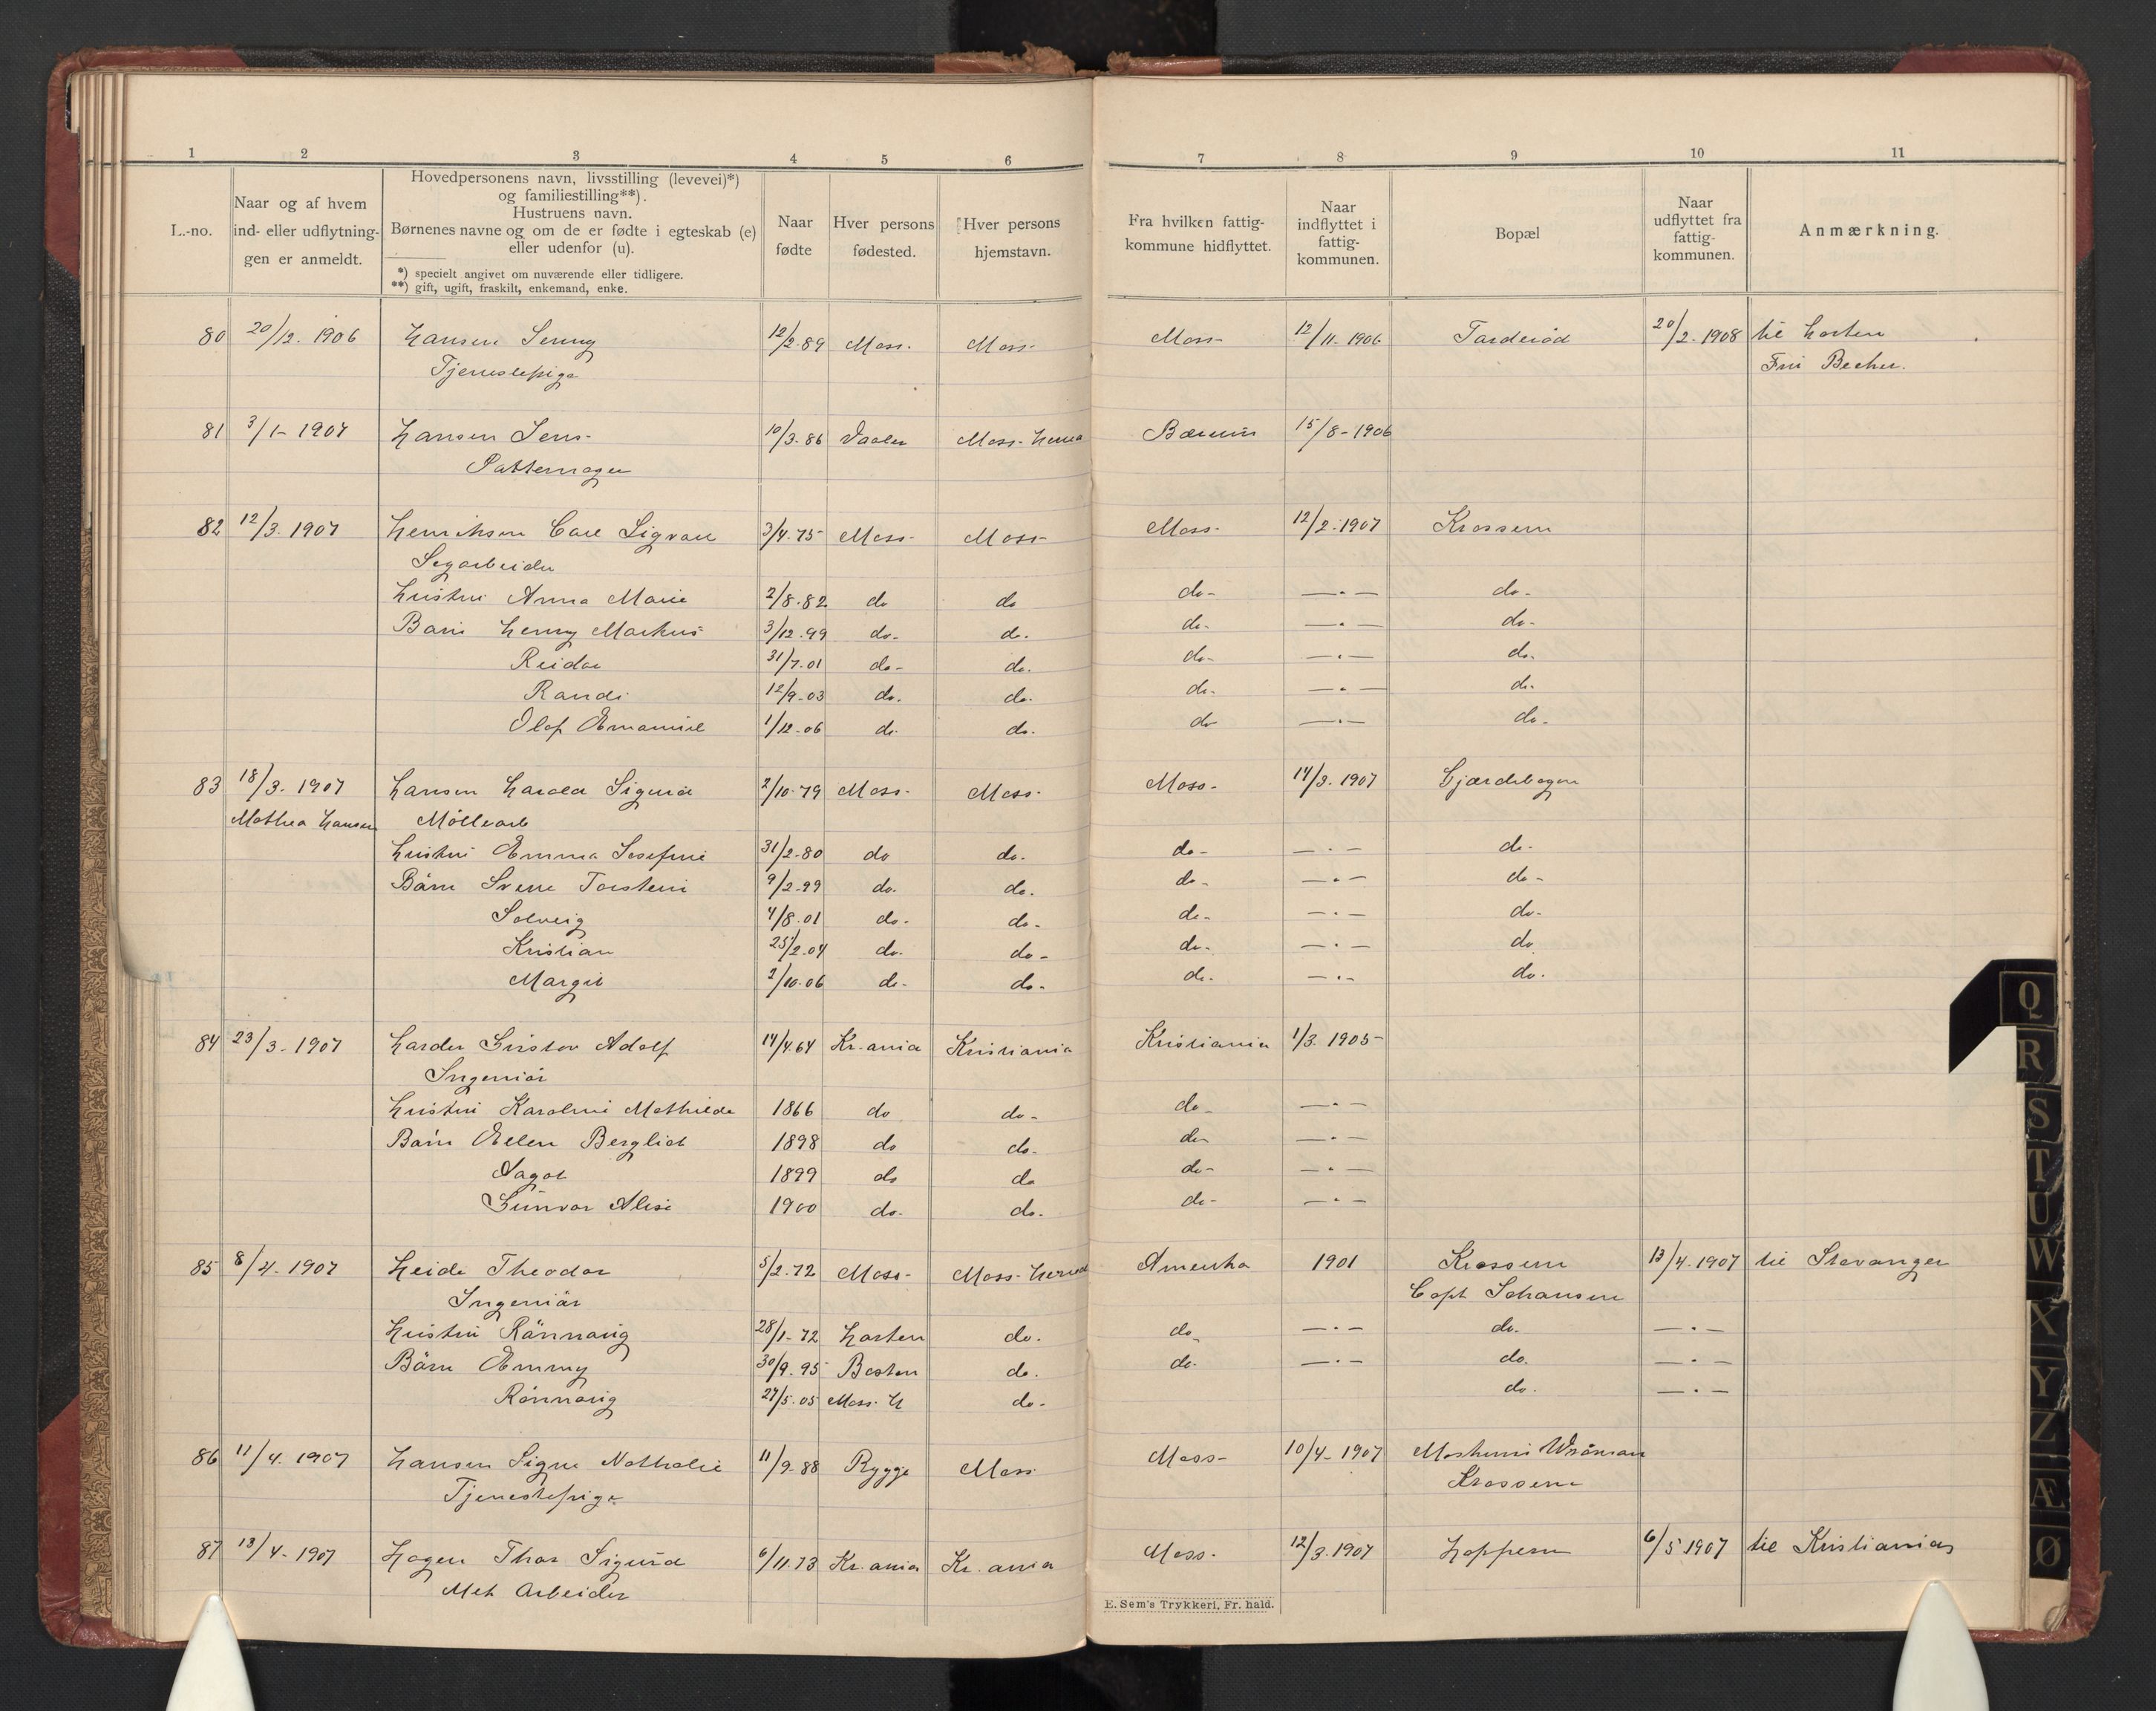 1 2 3 4 5 6 7 8 9 10 11
L.-no.
Naar og af hvem
ind- eller udflytnin-
gen er anmeldt.
Hovedpersonens navn, livsstilling (levevei)*)
og familiestilling**).
Hustruens navn.
Børnenes navne og om de er fødte i egteskab (e)
eller udenfor (u).
*) specielt angivet om nuværende eller tidligere.
**) gift, ugift, fraskilt, enkemand, enke.
Naar
fødte
Hver persons
fødested.
Hver persons
hjemstavn.
Fra hvilken fattig-
kommune hidflyttet.
Naar
indflyttet i
fattig-
kommunen.
Bopæl
Naar
udflyttet fra
fattig-
kommunen.
Anmærkning.
80 20/12. 1906 Hansen Jenny 12/2-89 Moss. Moss- Moss- 12/11-1906 Tarderød 20/2-1908 til Horten
Tjenestepige Becher.
81 3/1-1907 Hansen Jens- 10/3-86 Vaaler Moss-Herred Bærum 15/8-1906
82 12/3. 1907 Henriksen Carl Sigvart 3/4-75 Moss- Moss- Moss- 12/2-1907 Krossern
Hustru Anna Marie 2/8-82 do do do- —·— do-
Barn Henry Markus 3/12.99 do- do. do- —·— do-
Reidar 31/7.01 do- do. do- —·— do.
Randi 12/9-03 do. do. do- —·— do-
Olaf Emanuel 1/12-06 do. do. do —·— do-
83 18/3. 1907 Hansen Harald Sigurd 2/10-79 Moss- Moss- Moss- 14/3. 1907
Mathea Hansen Møllearb
Hustru Emma Josefine 31/2-80 do do. do- —·— do-
Børn Svenn Torstein 9/2-99 do. do. do- —·— do-
Solveig 4/8.01 do- do- do- —·— do-
Kristian 25/2.04 do. do- do- —·— do
Margit 2/10-06 do- do- do- —·— do.
84 23/3-1907 Harder Gustav Adolf 14/4.64 Kr.ania Kristiania Kristiania 1/3. 1905-
Ingeniør
Hustru Karoline Mathilde 1866 do do- do- —·—
Børn Ellen Bergliot 1898 do do- do- —·—
Dagot 1899 do do do- —·—
Gunvor Alise 1900 do- do. do- —·—
85 8/4-1907 Heide Theodor 5/2-72 Moss- Moss-Herred Amerika 1901 Krossern 13/4-1907 til Stavanger
Ingeniør Capt Johansen
Hustru Rønnaug 28/1-72 Horten do. do- —·— do. —·—
Børn Emmy 30/9.95 Boston do. do- —·— do. —·—
Rønnaug 27/5.05 Moss. H do- do. —·—
86 11/4. 1907 Hansen Signe Nathalie 11/9-88 Rygge Moss Moss- 10/4-1907
Tjenestepige Krossern
87 13/4-1907 Hagen Thor Sigurd 6/11.73 Kr.ania Kr.ania Moss- 12/3.1907 Hoppern 6/5 1907 til Kristiania
Mek Arbeider
E. Sem's Trykkeri, Fr. hald.
Q
R
S
T
U
W
X
Y
Z
Æ
Ø